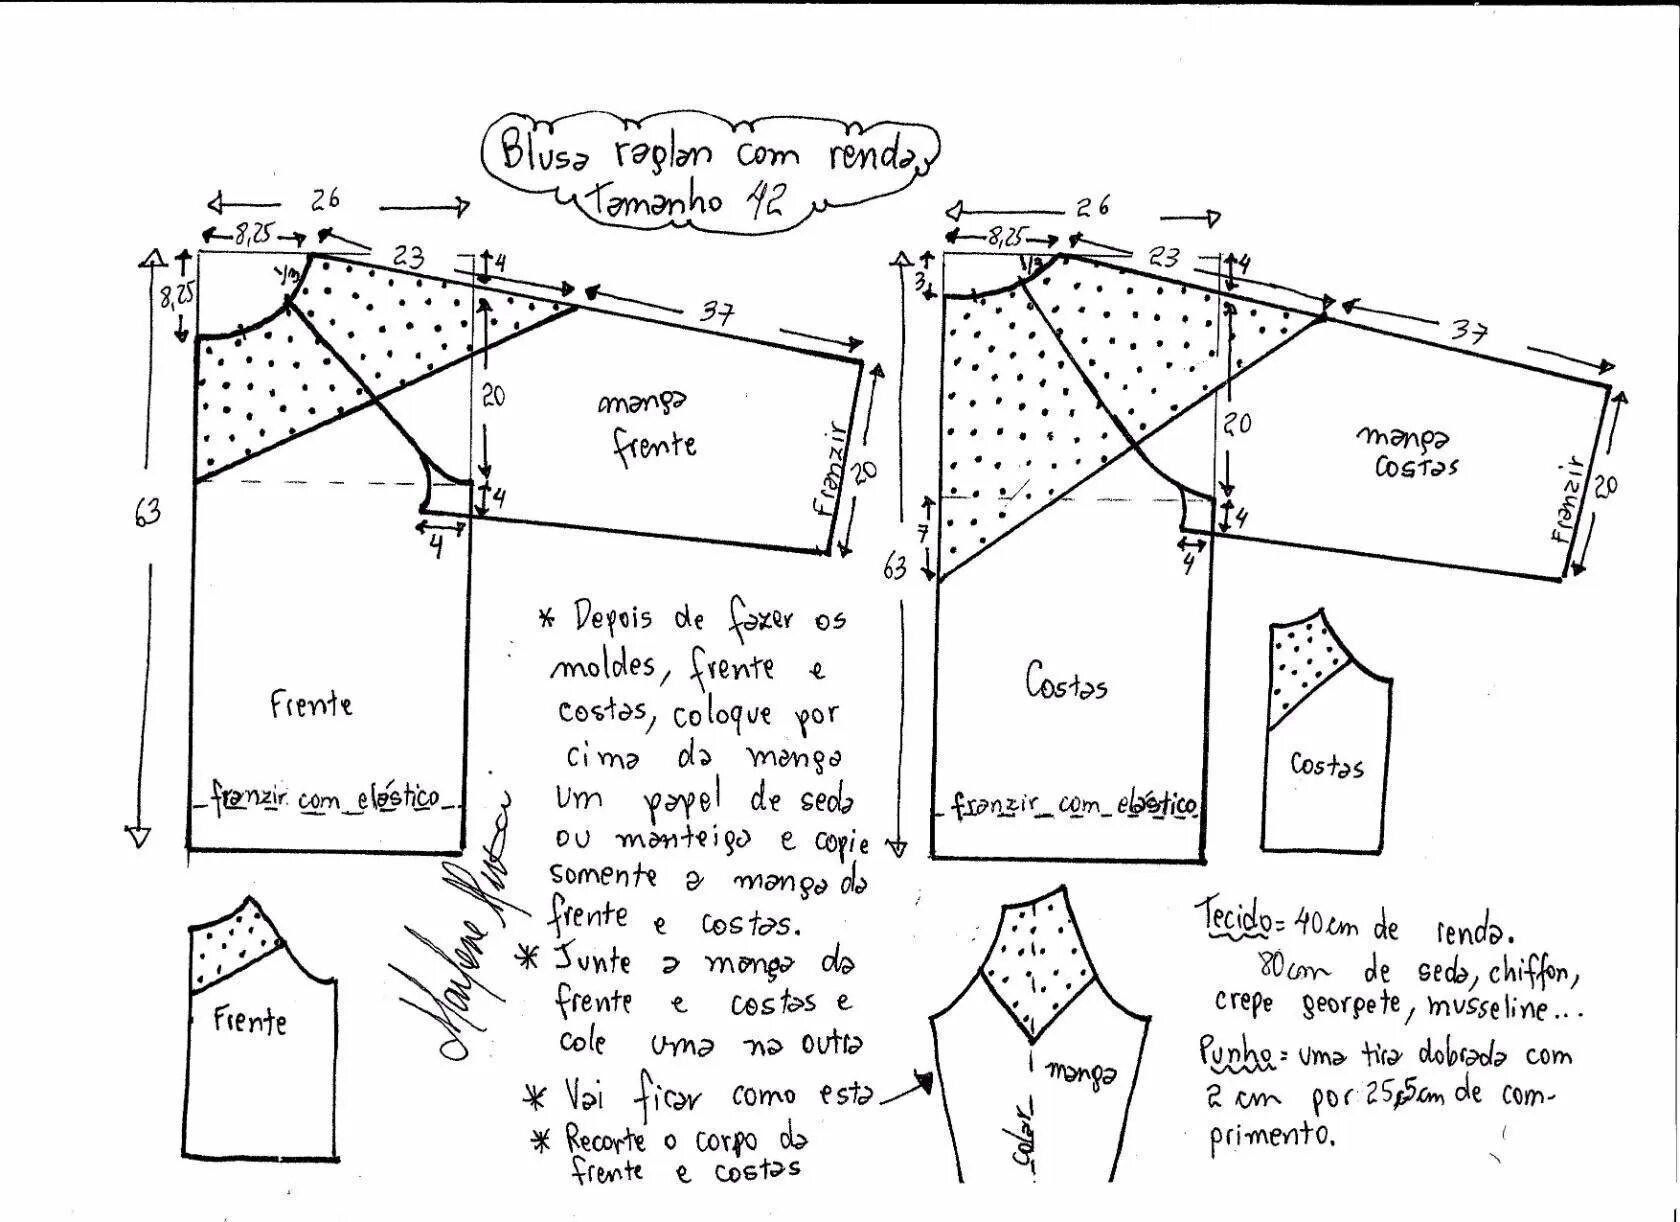 Blusa raglan com renda
Tamanho 42
26
8,25
23
4
8,25
1/3
37
20
manga
frente
Franzir
20
4
4
63
Frente
franzir com elástico
26
8,25
23
4
3
1/3
37
20
manga
costas
Franzir
20
7
4
4
63
Costas
franzir com elástico
* Depois de fazer os
moldes, frente e
costas, coloque por
cima da manga
um papel de seda
ou manteiga e copie
somente a manga da
frente e costas.
* Junte a manga da
frente e costas e
cole uma na outra
* Vai ficar como esta
* Recorte o corpo da
frente e costas
Marlene
Frente
costas
manga
colar
Tecido= 40cm de renda.
80cm de seda, chiffon,
crepe georgete, musseline...
Punho= uma tira dobrada com
2 cm por 25,5cm de com-
primento.